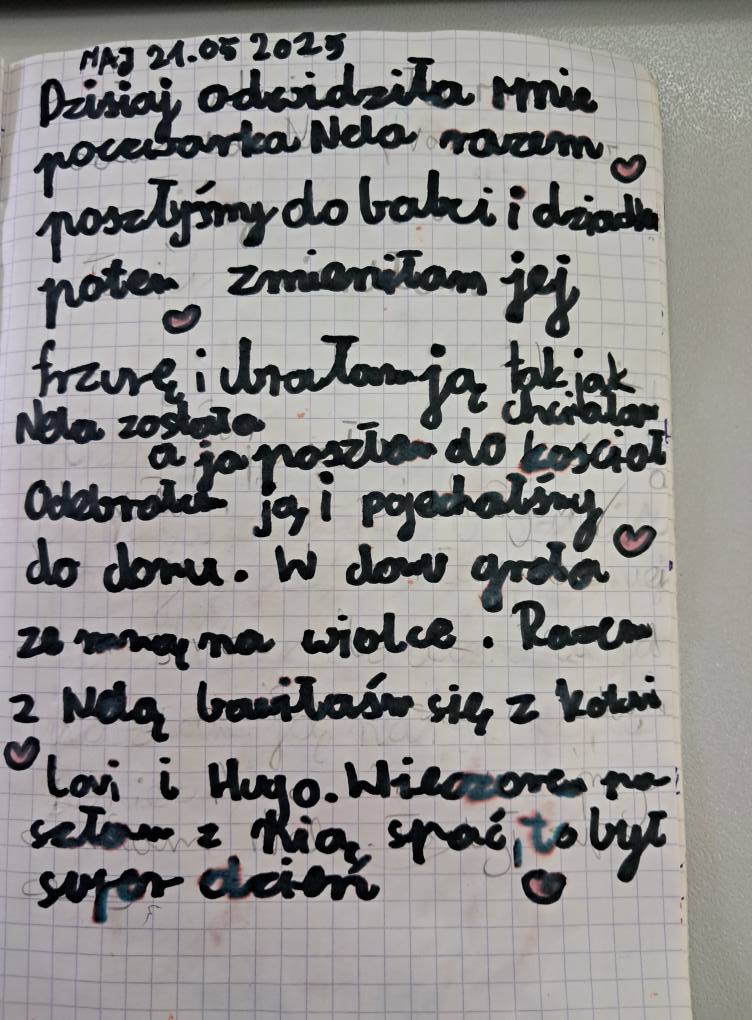 MAJ 21.05 2025
Dzisiaj odwidziła mnie
poczwarka Nela razem
poszłyśmy do babci i dziadka
potem zmieniłam jej
frzurę i ubrałam ją tak jak
chciałam
Nela została
a ja poszłam do kościoł
Odebrałam ją i pojechałśmy
do domu. W domu grała
ze mną na wiolce. Razem
z Nelą bawiłaśm się z kotami
Lovi i Hugo. Wieczorem po-
szłam z Kią spać, to był
super dzień